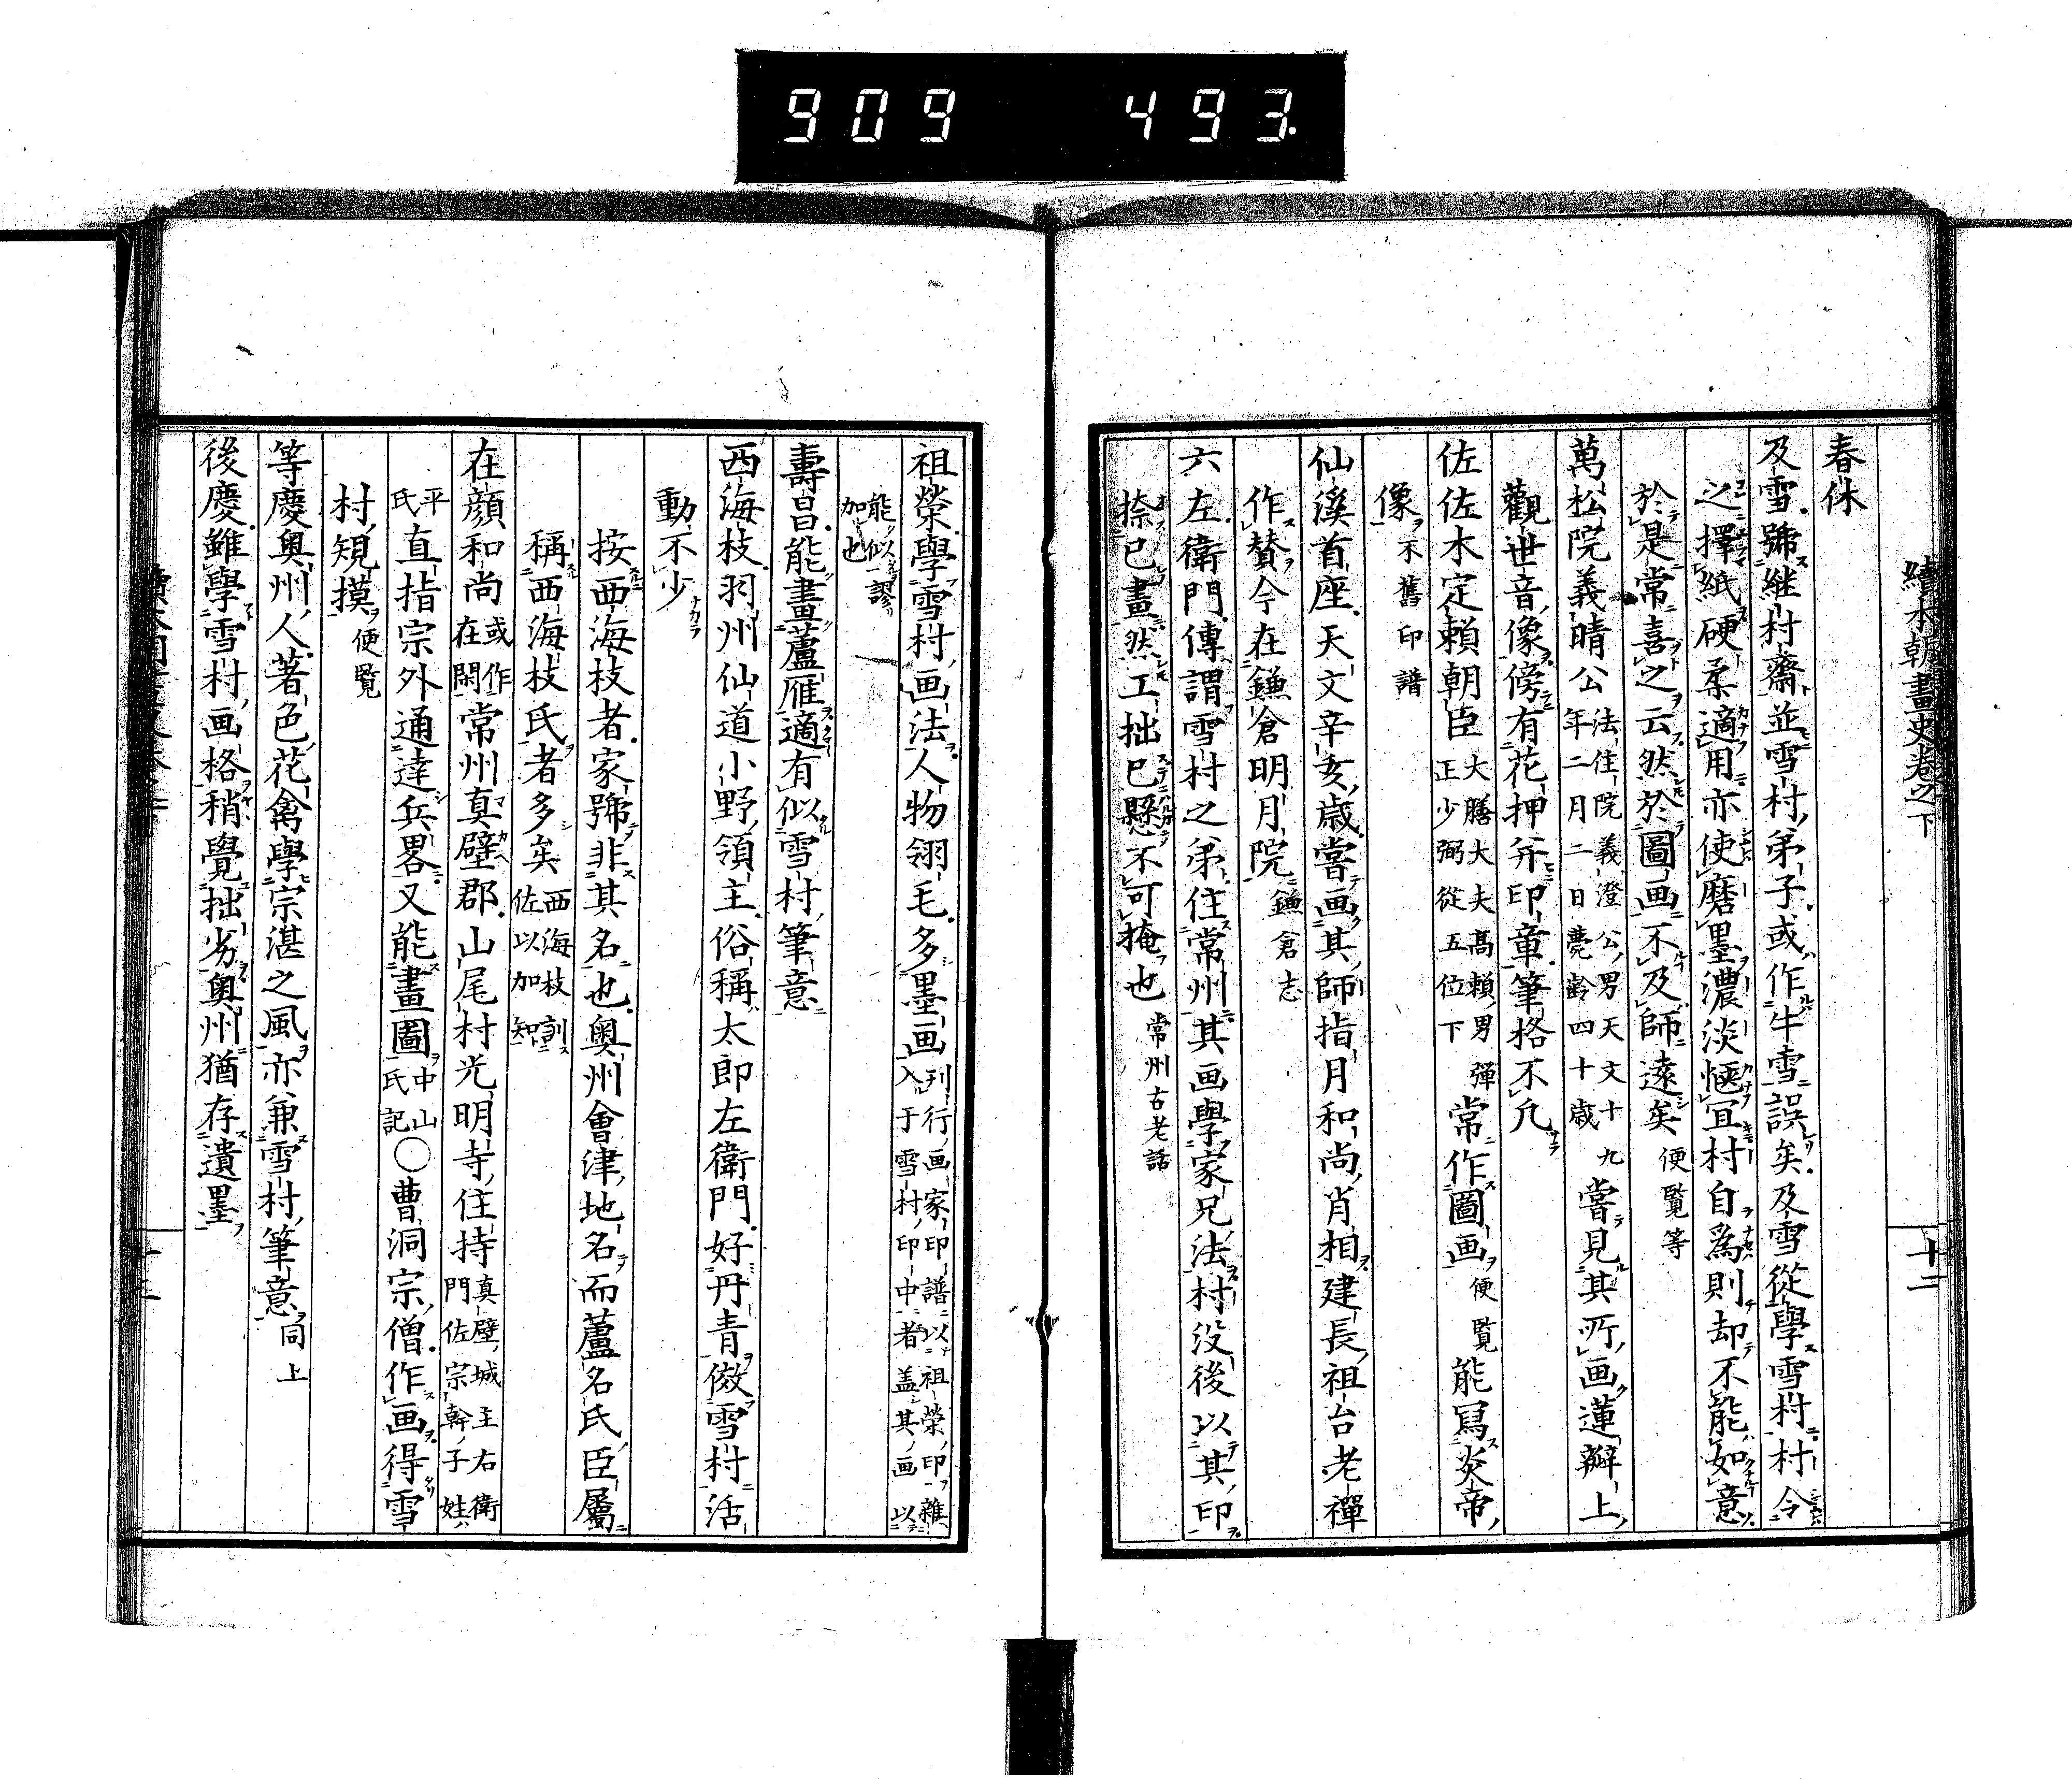 909 493.
續本朝畫史卷之下
十二
春休
及雪號継村齋並雪村弟子或作牛雪誤矣及雪從學雪村村令
之擇紙硬柔適用亦使磨墨濃淡愜冝村自爲則却不能如意
於是常喜之云然於圖画不及師遠矣便覧等
萬松院義晴公法住院義澄公男天文十九年二月二日薨齡四十歳嘗見其所画蓮瓣上
觀世音像傍有花押并印章筆格不凢
佐佐木定頼朝臣大膳大夫髙頼男彈正少弼從五位下常作圖画便覧能冩炎帝
像不舊印譜
仙溪首座天文辛亥歳嘗画其師指月和尚肖相建長祖台老禪
作賛今在鎌倉明月院鎌倉志
六左衛門傳謂雪村之弟住常州其画學家兄法村没後以其印
捺已畫然工拙已懸不可掩也常州古老話
祖榮學雪村画法人物翎毛多墨画列行画家印譜以祖榮印雜入于雪村印中者盖其画以
能似謬加也
壽昌能畫蘆雁適有似雪村筆意
西海枝羽州仙道小野領主俗稱太郎左衛門好丹青倣雪村活
動不少
按西海枝者家號非其名也奥州會津地名而蘆名氏臣屬
稱西海枝氏者多矣西海枝訓佐以加知
在顔和尚或作在閑常州真壁郡山尾村光明寺住持真壁城主右衛門佐宗幹子姓
平氏直指宗外通達兵畧又能畫圖中山氏記〇曹洞宗僧作画得雪
村規摸便覧
等慶奥州人著色花禽學宗湛之風亦兼雪村筆意同上
後慶雖學雪村画格稍覺拙劣奥州猶存遺墨